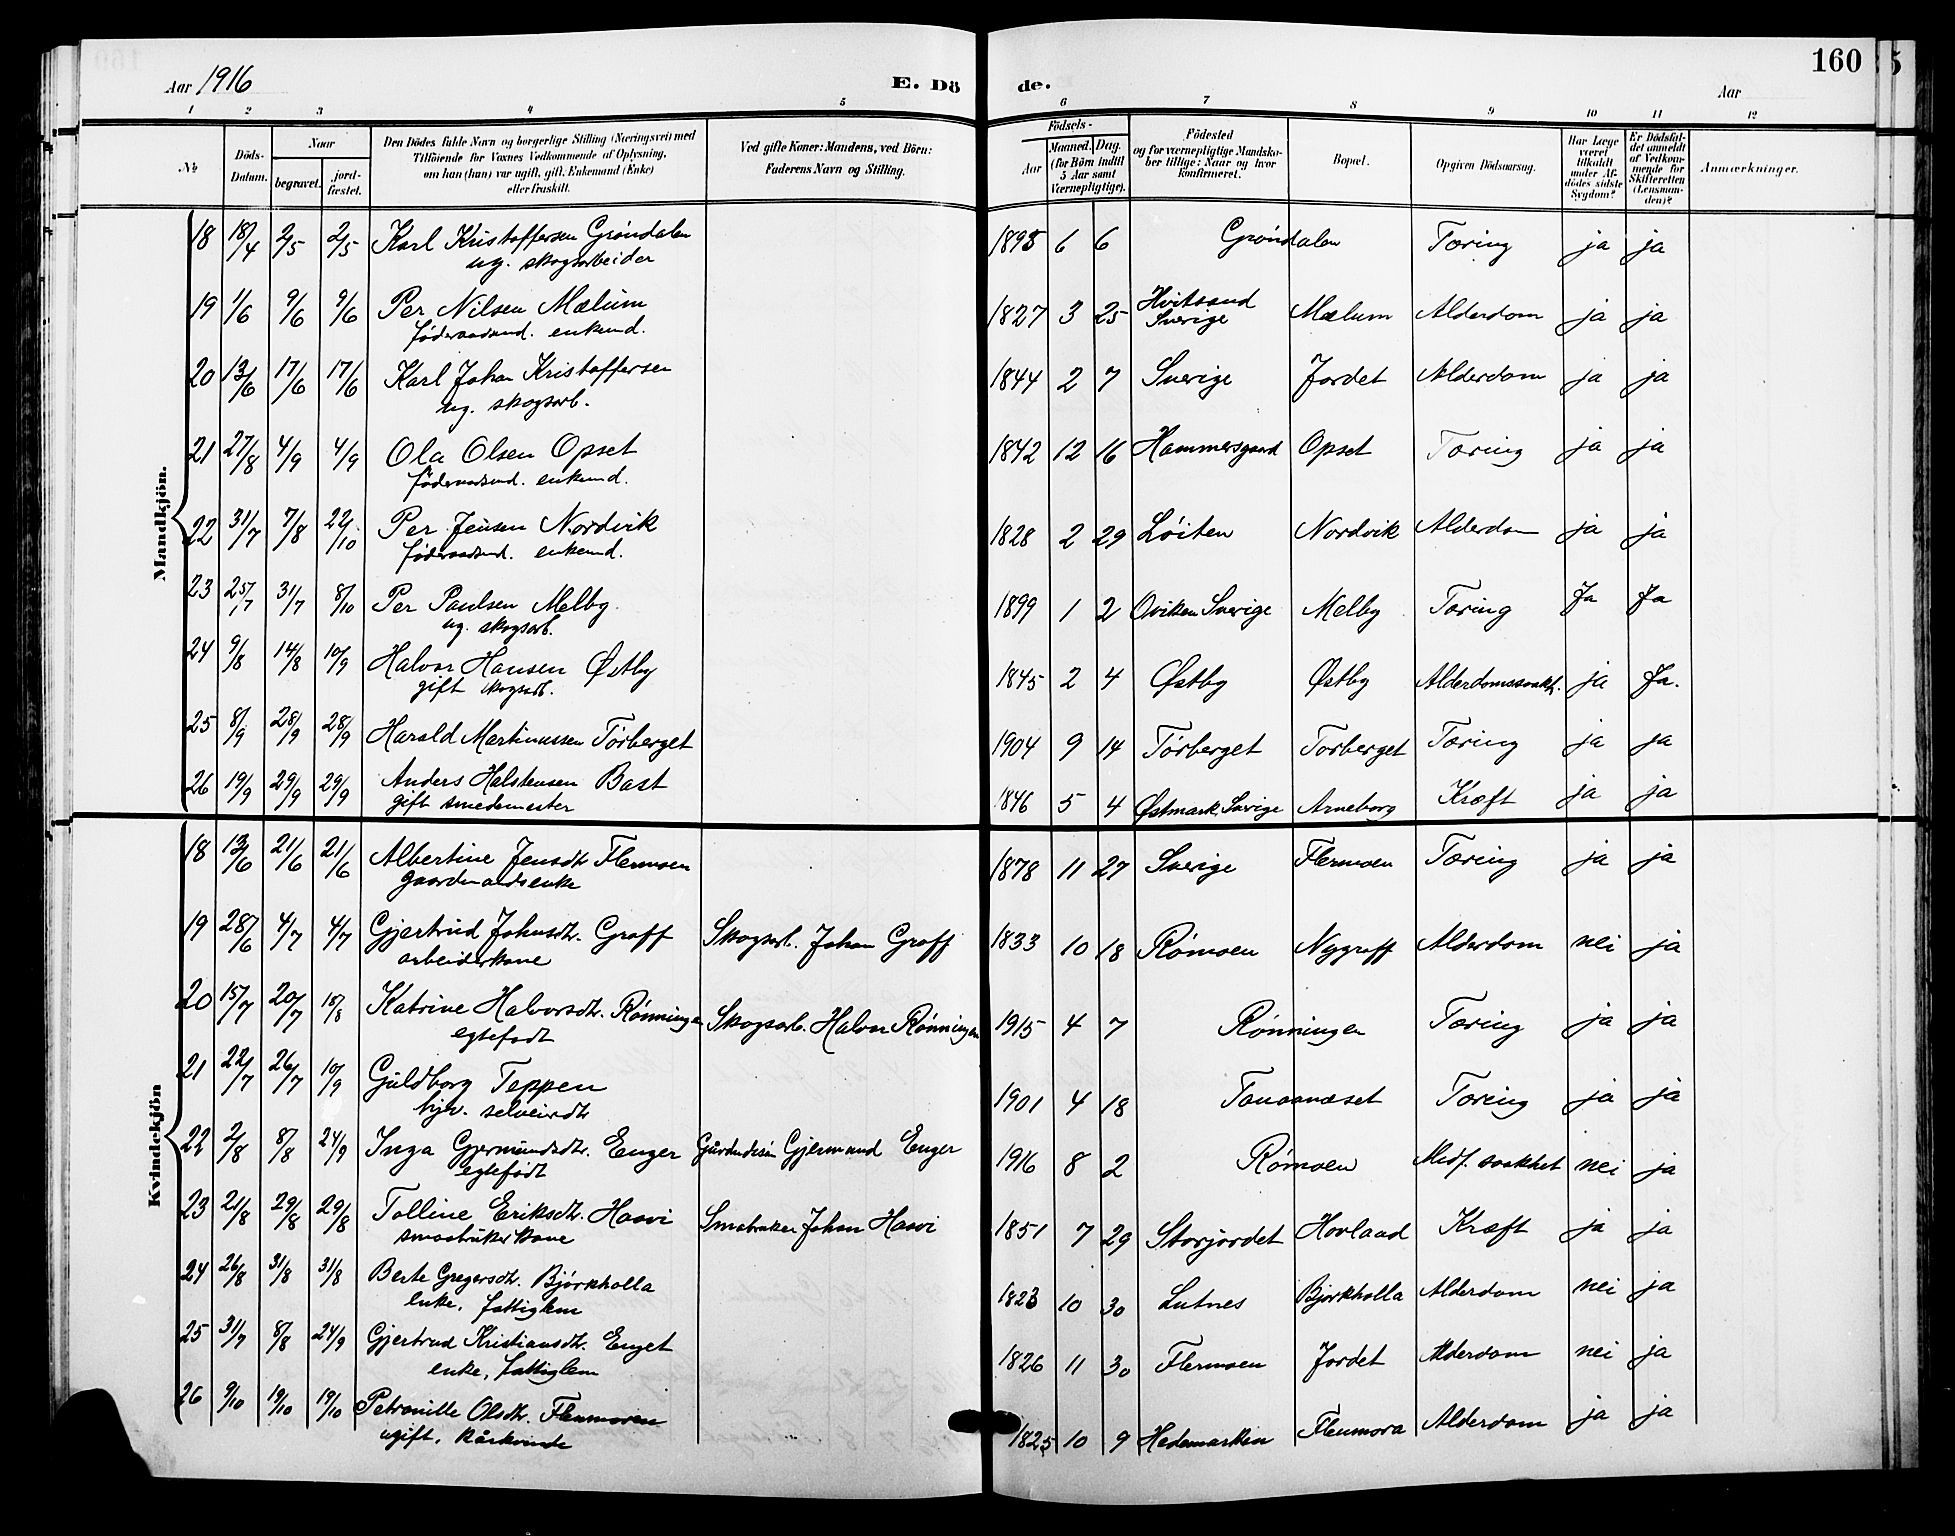 160
Aar 1916
E. Dö
de.
Aar
1 2 3 4 5 6 7 8 9 10 11 12
No
Döds-
Datum.
Naar
begravet.
jord-
fæstet.
Den Dödes fulde Navn og borgerlige Stilling (Næringsvei) med
Tilföiende for Voxnes Vedkommende af Oplysning,
om han (hun) var ugift, gift, Enkemand (Enke)
eller fraskilt.
Ved gifte Koner: Mandens, ved Börn:
Faderens Navn og Stilling.
Födsels-
Aar
Maaned. Dag.
(for Börn indtil
5 Aar samt
Værnepligtige).
Födested
og for værnepligtige Mandskaber tillige: Naar og hvor
konfirmeret.
Bopæl.
Opgiven Dödsaarsag.
Har Læge
været
tilkaldt
under Afdödes sidste
Sygdom?
Er Dödsfaldet anmeldt
af Vedkommende for
Skifteretten
(Lensmanden)?
Anmærkninger.
Mandkjön.
18 18/4 2/5 2/5 Karl Kristoffersen Grøndalen 1895 6 6 Grøndalen Tæring ja ja
ug. skogsarbeider
19 1/6 9/6 9/6 Per Nilsen Mælum 1827 3 25 Hvitsand Sverige Mælum Alderdom ja ja
føderaadsmd. enkemd.
20 13/6 17/6 17/6 Karl Johan Kristoffersen 1844 2 7 Sverige Jordet Alderdom ja ja
ug. skogsarb.
21 27/8 4/9 4/9 Ola Olsen Opset 1842 12 16 Hammersgaard Opset Tæring ja ja
føderaadsmd. enkemd.
22 31/7 7/8 22/10 Per Jensen Nordvik 1828 2 29 Løiten Nordvik Alderdom ja ja
føderaadsmd. enkemd.
23 25/7 31/7 8/10 Per Paulsen Melby 1899 1 2 Oviken Sverige Melby Tæring Ja Ja
ug. skogsarb.
24 9/8 14/8 10/9 Halvor Hansen Østby 1845 2 4 Østby Østby Alderdomssvakh. ja Ja.
gift skogsarb.
25 8/9 28/9 28/9 Harald Martinussen Tørberget 1904 9 14 Tørberget Tørberget Tæring ja ja
26 19/9 29/9 29/9 Anders Halstensen Bast 1846 5 4 Østmark, Sverige Arneborg Kræft ja ja
gift smedemester
Kvindekjön
18 13/6 21/6 21/6 Albertine Jensdtr Flermoen 1878 11 27 Sverige Flermoen Tæring ja ja
gaardmandsenke
19 28/6 4/7 4/7 Gjertrud Johnsdtr. Graff Skogsarb. Johan Graff 1833 10 18 Rømoen Nygraff Alderdom nei ja
arbeiderkone
20 15/7 20/7 18/8 Katrine Halvorsdtr. Rønningen Skogsarb. Halvor Rønningen 1915 4 7 Rønningen Tæring ja ja
egtefødt
21 22/7 26/7 10/9 Guldborg Teppen 1901 4 18 Tanaanæset Tæring ja ja
hjv. selveierdtr
22 2/8 8/8 24/9 Inga Gjermundsdtr. Enger Gjermund Enger 1916 8 2 Rømoen Medf. svakhet nei ja
egtefødt
23 21/8 29/8 29/8 Tolline Eriksdtr. Haavi Smabruker Johan Haavi 1851 7 29 Storjordet Hovlaad Kræft ja ja
smaabruker kone
24 26/8 31/8 31/8 Berte Gregersdtr. Bjørkholla 1823 10 30 Lutnes Bjørkholla Alderdom nei ja
enke, fattiglem
25 31/7 8/8 24/9 Gjertrud Kristiansdtr. Enget 1826 11 30 Flermoen Jordet Alderdom nei ja
enke, fattiglem
26 9/10 19/10 19/10 Petronille Olsdtr. Flenmoren 1825 10 9 Hedemarken Flenmora Alderdom ja ja
ugift, kårkvinde